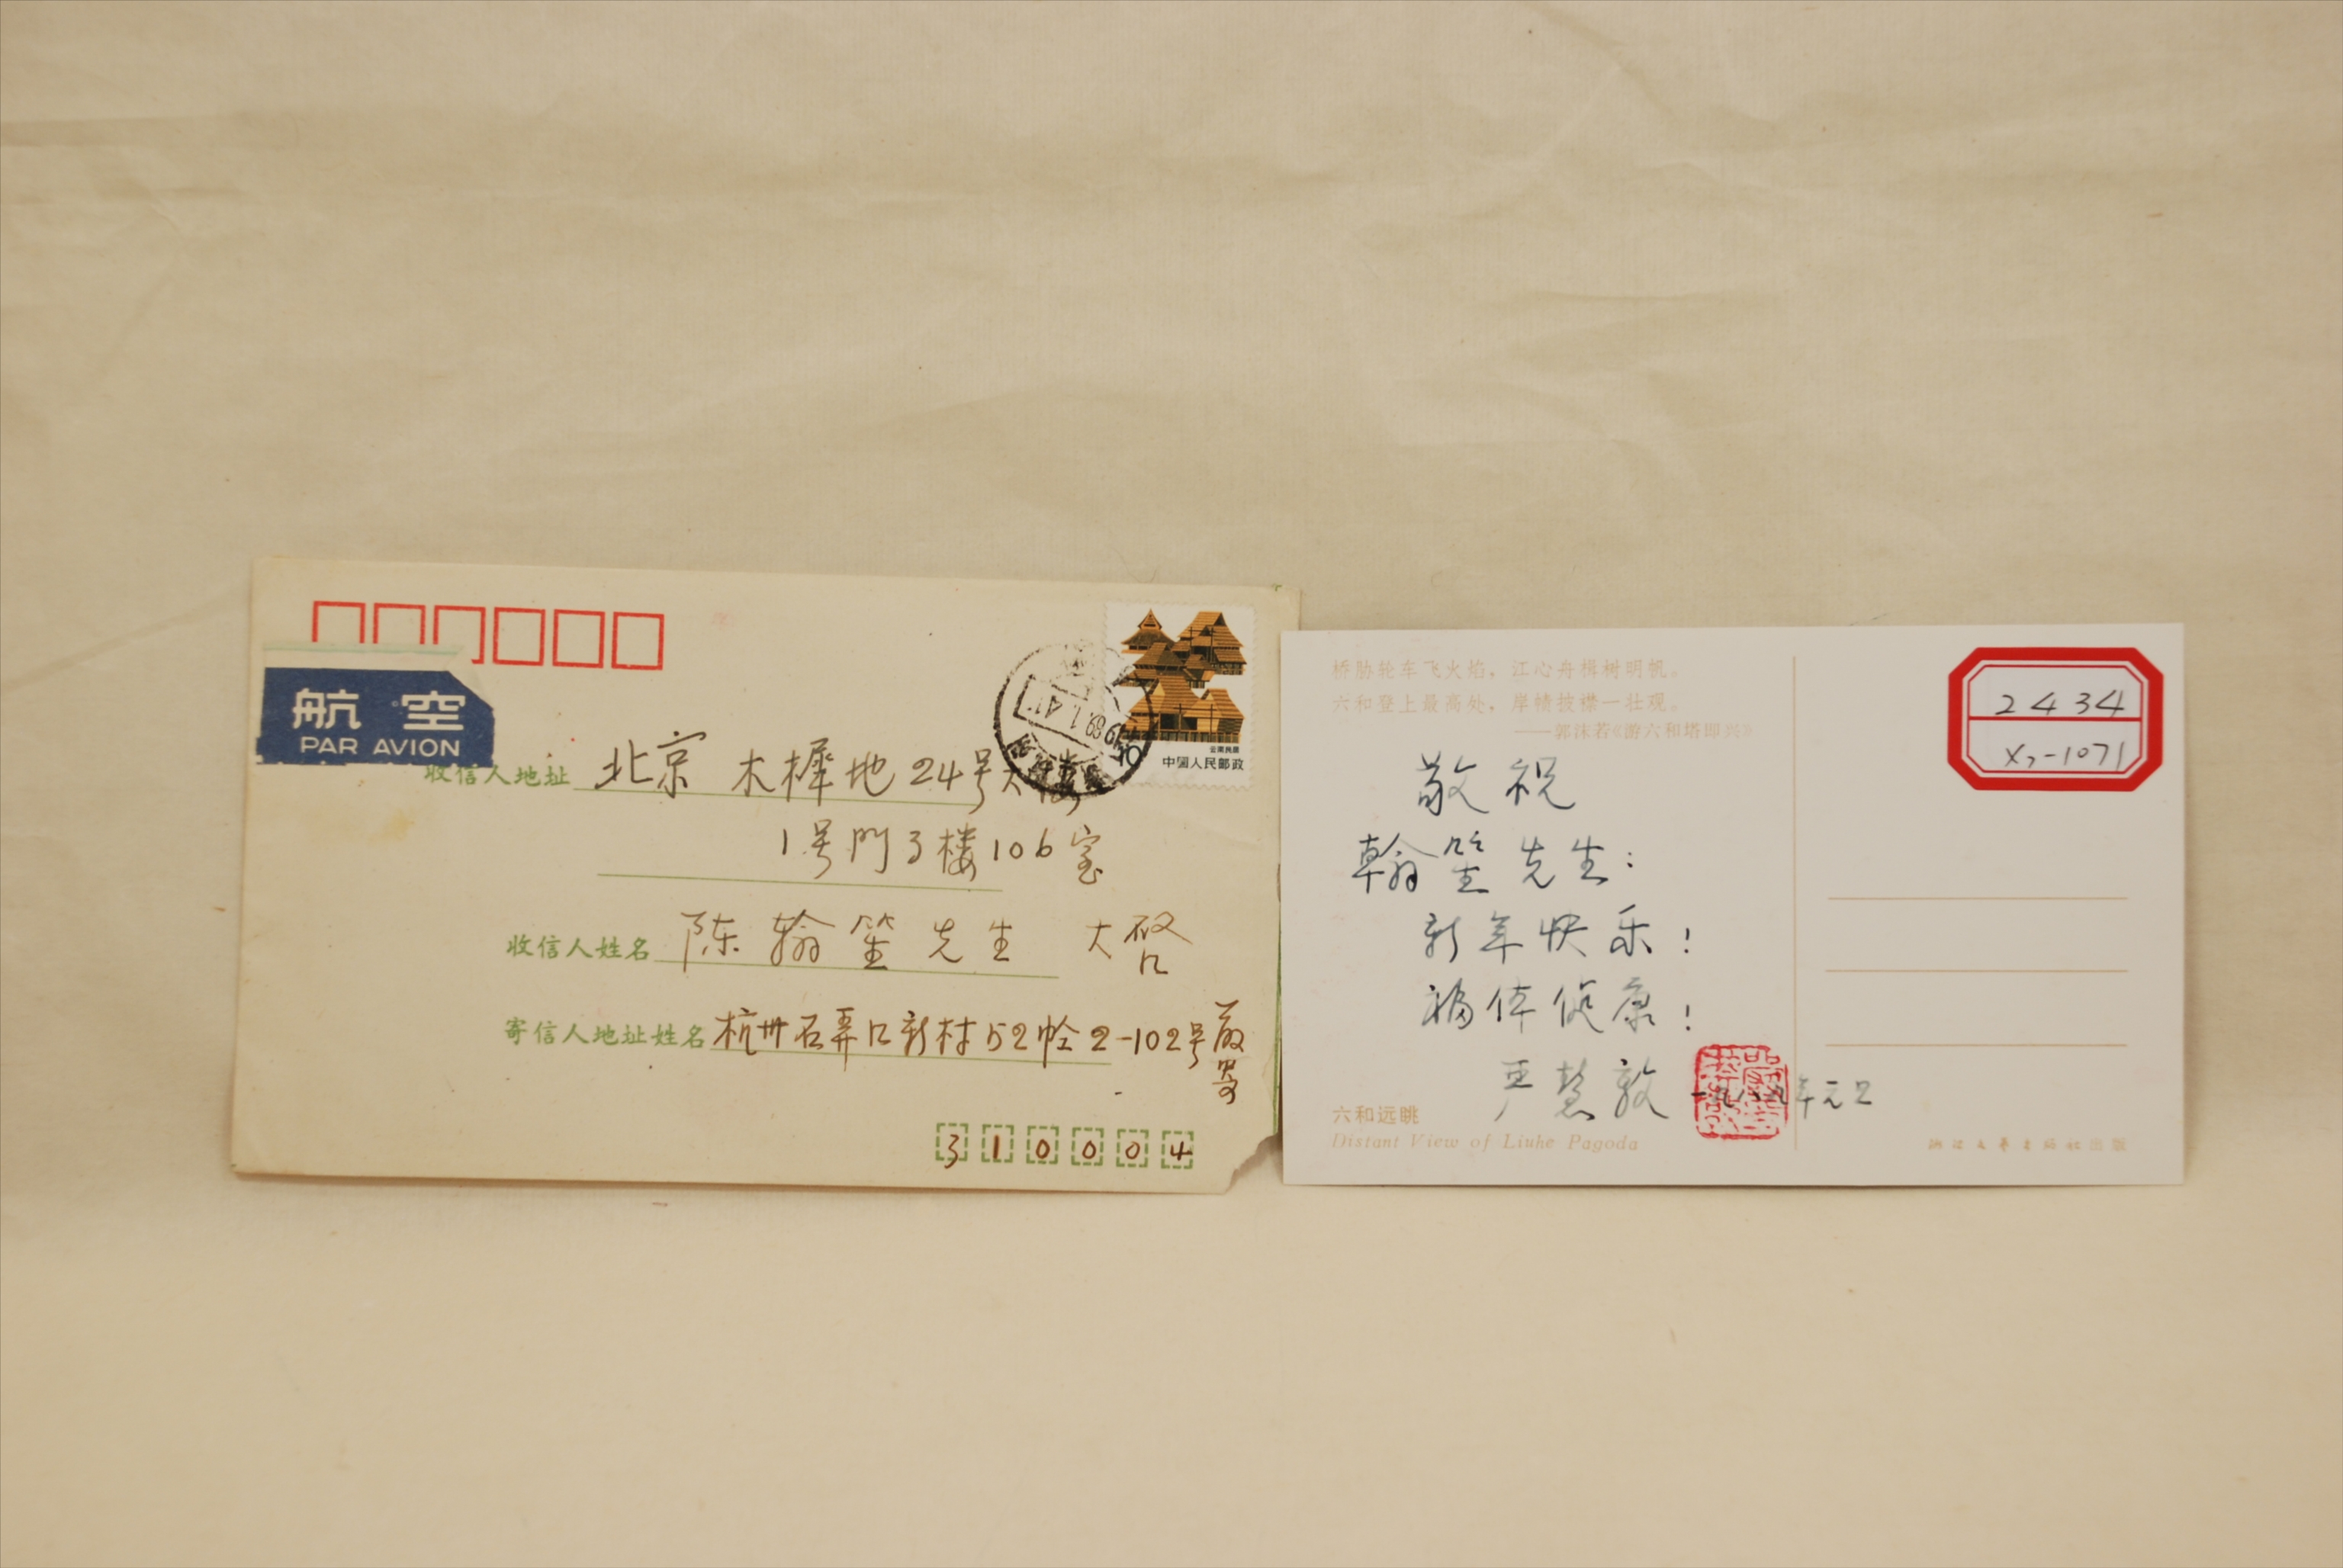 航空
PAR AVION
收信人地址 北京 木樨地24号大楼
1号門3楼106室
收信人姓名 陈翰笙先生 大啓
寄信人地址姓名 杭州石弄口新村52幢2-102号嚴寄
310004
云南民居
中国人民邮政
桥胁轮车飞火焰，江心舟楫树明帆。
六和登上最高处，岸帻披襟一壮观。
——郭沫若《游六和塔即兴》
敬祝
翰笙先生：
新年快乐！
福体健康！
严慧敦
一九八九年元旦
六和远眺
Distant View of Liuhe Pagoda
2434
X7-1071
出版